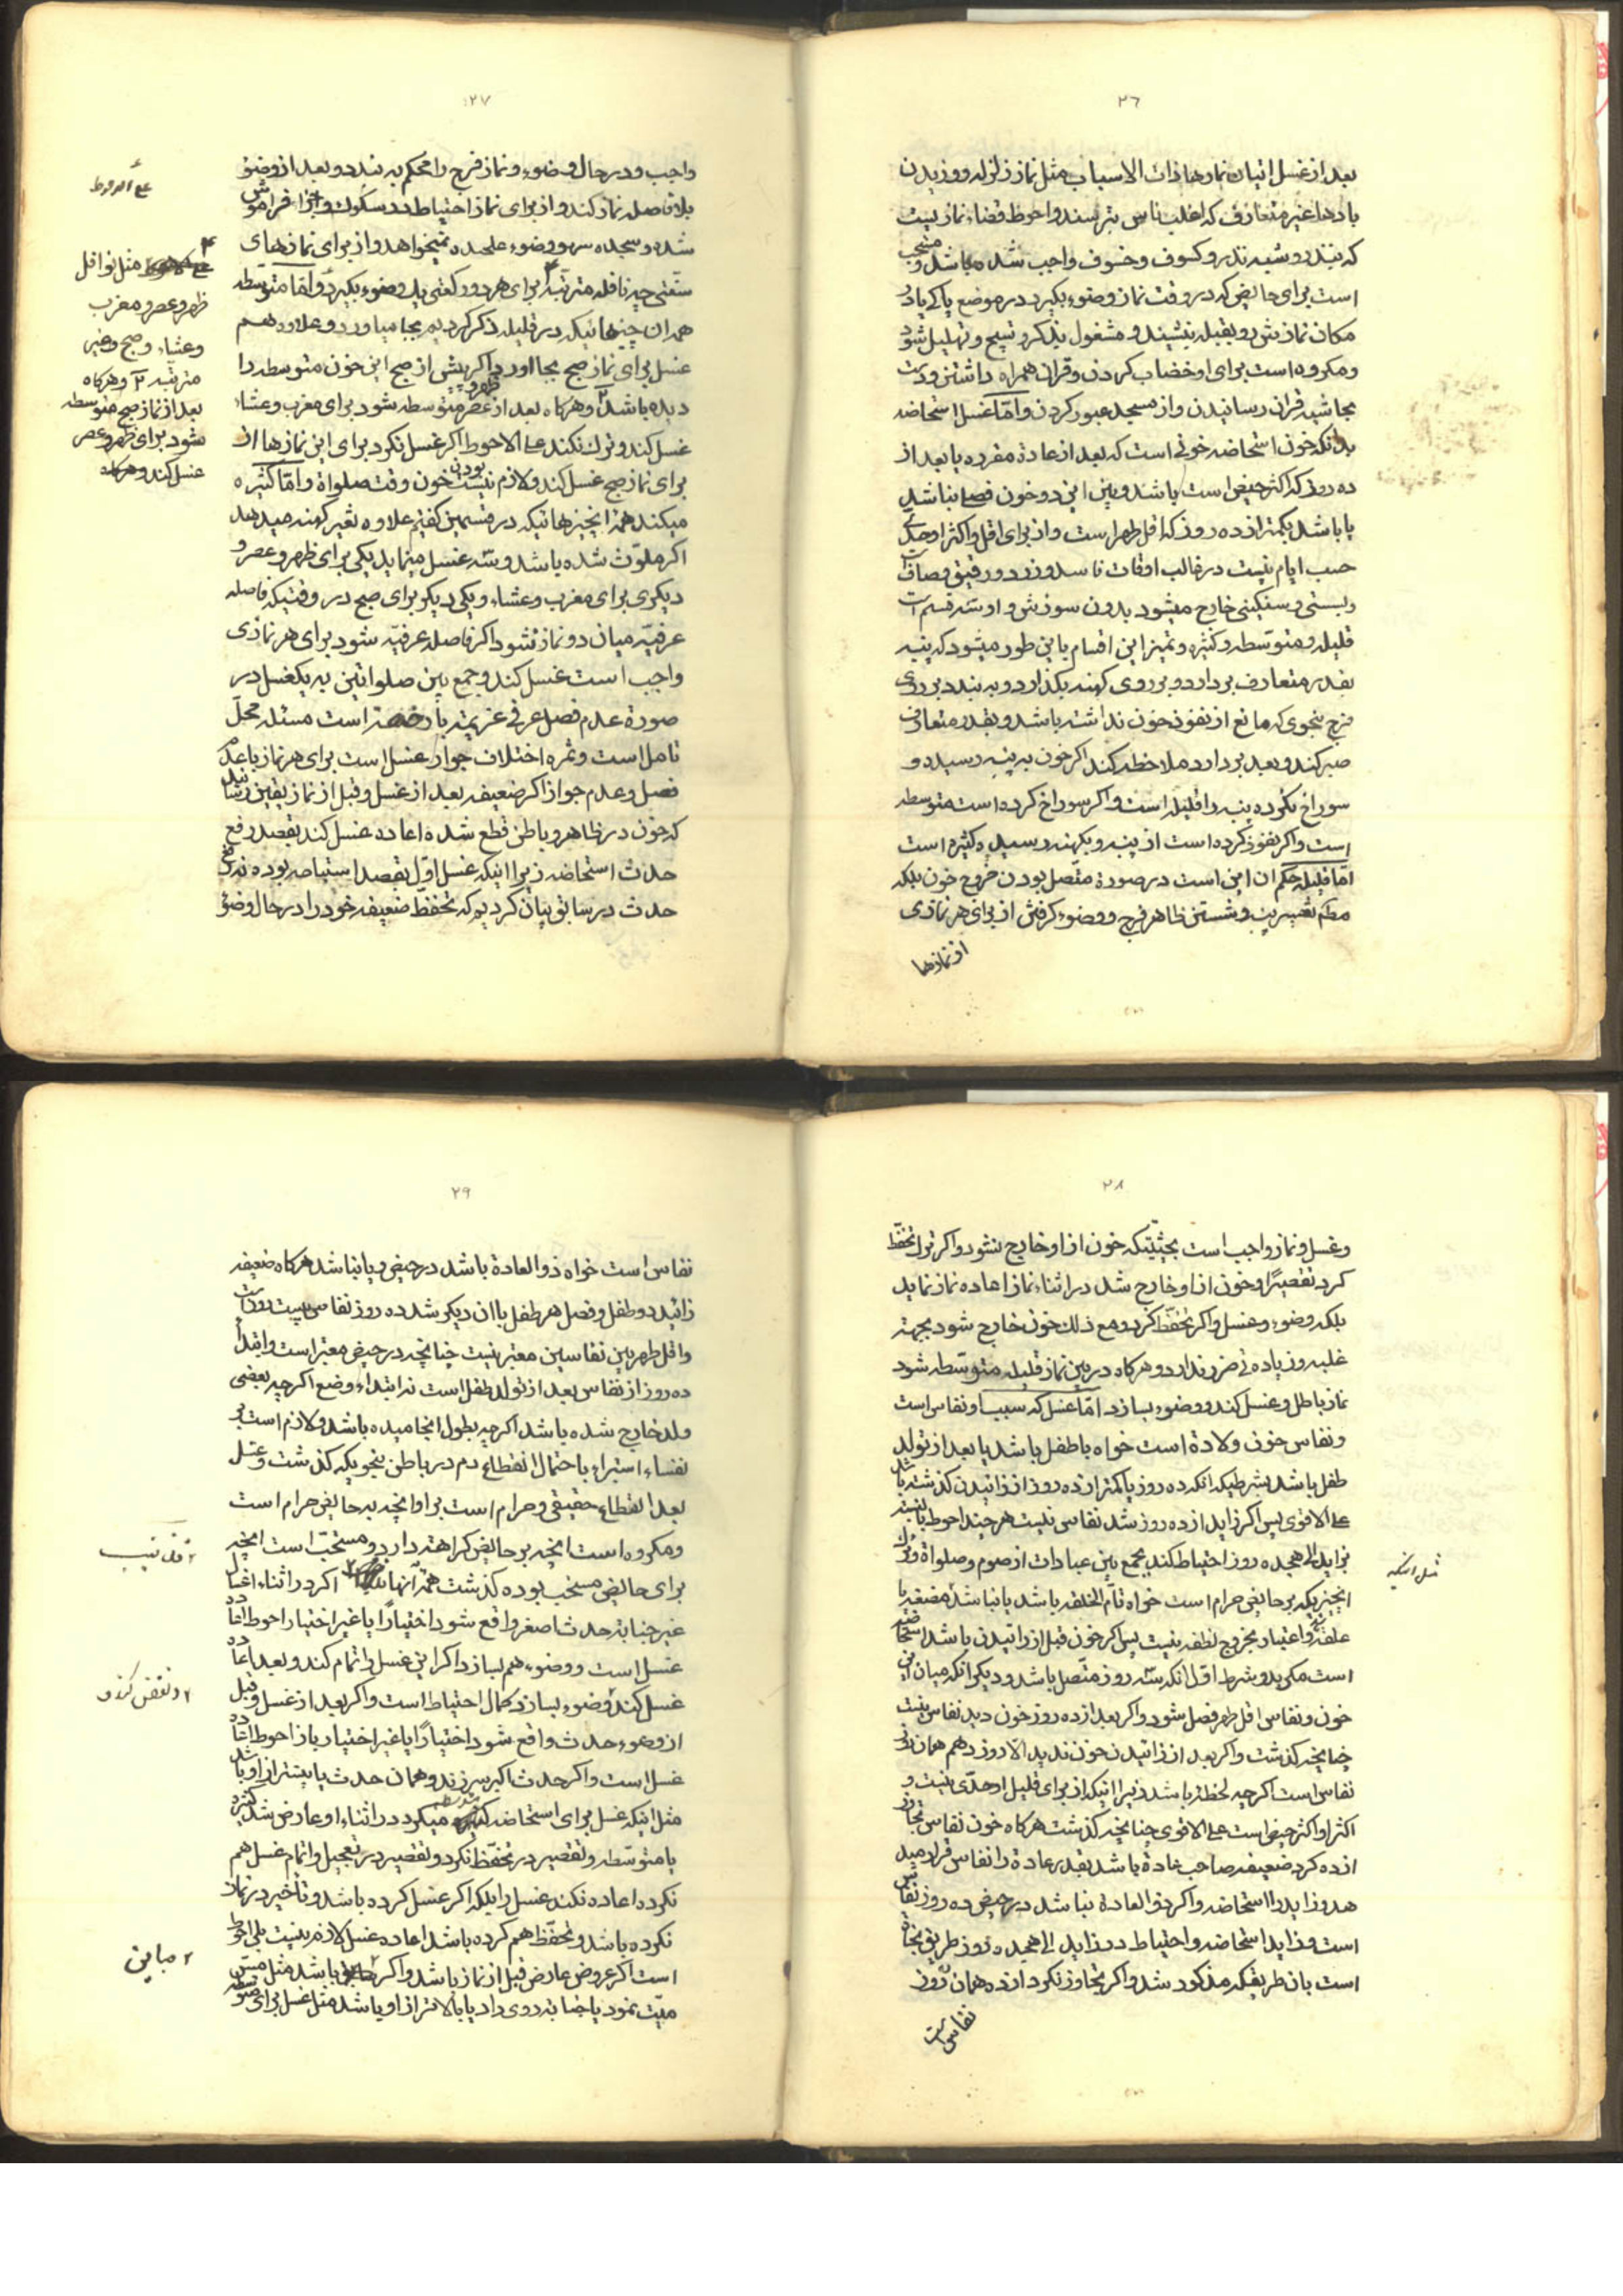 ٢٦
بعد از غسل اتیان نمازها ذات الاسباب مثل نماز زلزله و وزیدن
بادها غیر متعارف که اغلب ناس بترسند و احوط قضاء نماز نیست
که بنذر و شبه نذر و کسوف و خسوف واجب شده باشد و مستحب
است برای حایض که در وقت نماز وضوء بگیرد در موضع پاکی یا در
مکان نمازش رو بقبله بنشیند و مشغول بذکر و تسبیح و تهلیل شود
و مکروه است برای او خضاب کردن و قران همراه داشتن و دست
بحاشیه قران رسانیدن و از مسجد عبور کردن و امّا غسل استحاضه
بدانکه خون استحاضه خونی است که بعد از عادة مقرره یا بعد از
ده روز که اکثر حیض است باشد و بین این دو خون فصل نباشد
یا باشد بکمتر از ده روز که اقل طهر است و از برای اقل و اکثر او حدّی
حسب ایام نیست در غالب اوقات فاسد و زرد و رقیق و صاف است
و بستی و سنکینی خارج میشود بدون سوزش و او سّه قسم است
قلیله و متوسّطه و کثیره و تمیز این اقسام باین طور میشود که پنبه
بقدر متعارف بردارد و بر روی کهنه بکذارد و به بندد بر روی
فرج بنحوی که مانع از نفوذ خون نداشته باشد و بقدر متعارف
صبر کند و بعد بردارد ملاحظه کند اکر خون به پنبه رسیده و
سوراخ نکرده پنبه را قلیله است و اکر سوراخ کرده است متوسطه
است و اکر نفوذ کرده است از پنبه و بکهنه رسیده کثیره است
امّا قلیله حکم ان این است در صورة متّصل بودن خروج خون بلکه
مطم تغییر پنبه و شستن ظاهر فرج و وضوء کرفتن از برای هر نمازی
از نمازها
٢٧
واجب و در حال وضوء و نماز فرج را محکم به بندد و بعد از وضو
بلا فاصله نماز کند و از برای نماز احتیاط در سکوک و اجزا فراموش
شده و سجده سهو وضوء علحده نمیخواهد و از برای نمازهای
سنّتی چه نافله مترتبه برای هر دو رکعتی یک وضوء بکیرد و امّا متوسّطه
همه ان چیزهائیکه در قلیله ذکر کردیم بجا میاورد و علاوه هم
غسل برای نماز صبح بجا اورد اکر پیش از صبح این خون متوسطه را
دیده باشد و هرکاه بعد از ظهر و عصر متوسطه شود برای مغرب و عشاء
غسل کند و ترک نکند علی الاحوط اکر غسل نکرد برای این نمازها از
برای نماز صبح غسل کند و لازم نیست بودن خون وقت صلواة و امّا کثیره
میکند همه انچیزهائیکه در قسمین کفتیم علاوه تغییر کهنه میدهد
اکر ملوّث شده باشد و سّه غسل مینماید یکی برای ظهر و عصر و
دیکری برای مغرب و عشاء و یکی دیکر برای صبح در وقتیکه فاصله
عرفیّه میان دو نماز نشود اکر فاصله عرفیّه شود برای هر نمازی
واجب است غسل کند و جمع بین صلواتین به یکغسل در
صورة عدم فصل عرفی عزیمة یا رخصة است مسئله محلّ
تامل است و ثمره اختلاف جواز غسل است برای هر نماز با عدم
فصل و عدم جواز اکر ضعیفه بعد از غسل و قبل از نماز یقین رساند
که خون در ظاهر و باطن قطع شده اعاده غسل کند بقصد رفع
حدث استحاضه زیرا اینکه غسل اوّل بقصد استباحه بوده نه رفع
حدث در سابق بیان کردیم که تحفّظ ضعیفه خود را در حال وضو
مثل نوافل
ظهر و عصر و مغرب
وعشاء و صبح و غیر
مترتبه ٢ و هرکاه
بعد از نماز صبح متوسطه
شود برای ظهر و عصر
غسل کند و هرکاه
٢٨
و غسل و نماز واجب است بحیثیّتیکه خون از او خارج نشود و اکر ترک تحفّظ
کرد تقصیرًا و خون از او خارج شد در اثناء نماز اعاده نماز نماید
بلکه وضوء و غسل و اکر تحفّظ کرد و مع ذلک خون خارج شود بجهة
غلبه و زیاده تی ضرر ندارد و هرکاه در بین نماز قلیله متوسّطه شود
نماز باطل و غسل کند و وضوء بسازد امّا غسل که سبب او نفاس است
و نفاس خون ولادة است خواه با طفل باشد یا بعد از تولد
طفل باشد بشرطیکه انکه ده روز یا کمتر از ده روز از زائیدن کذشته باشد
علی الاقوی پس اکر زاید از ده روز شد نفاس نیست هر چند احوط بالنسبه
بزاید الی هجده روز احتیاط کند بجمع بین عبادات از صوم و صلواة و ترک
انچیزیکه بر حایض حرام است خواه تامّ الخلقه باشد یا نباشد مضغه یا
علقه و اعتبار بخروج نطفه نیست پس اکر خون قبل از زائیدن باشد استحاضه
است مکر بدو شرط اوّل انکه سّه روز متّصل باشد و دیکر انکه میان این
خون و نفاس اقل طهر فصل شود و اکر بعد از ده روز خون دید نفاس نیست
چنانچه کذشت و اکر بعد از زائیدن خون ندید الّا روز دهم همان روز
نفاس است اکرچه لحظة باشد زیرا اینکه از برای قلیل او حدّی نیست و
اکثر او اکثر حیض است علی الاقوی چنانچه کذشت هرکاه خون نفاس تجاوز
از ده کرد ضعیفه صاحب عادة باشد بقدر عادة را نفاس قرار میدهد
هد و زاید را استحاضه و اکر ذو العادة نباشد در حیض ده روز نفاس
است و زاید استحاضه و احتیاط در زاید الی هجده روز طریق نجاة
است بان طریقیکه مذکور شد و اکر تجاوز نکرد از ده همان روز
نفاس است
مثل اینکه
٢٩
نفاس است خواه ذو العادة باشد در حیض و یا نباشد هرکاه ضعیفه
زائید دو طفل و فصل هر طفل با ان دیکر شد ده روز نفاس بیست روز است
و اقل طهر بین نفاسین معتبر نیست چنانچه در حیض معتبر است و ابتداء
ده روز از نفاس بعد از تولد طفل است نه ابتداء وضع اکرچه بعضی
ولد خارج شده باشد اکرچه بطول انجامیده باشد و لازم است بر
نفساء استبراء با احتمال انقطاع دم در باطن بنحویکه کذشت و غسل
بعد انقطاع حقیقی و حرام است بر او انچه به حایض حرام است
و مکروه است انچه بر حایض کراهة دارد و مستحبّ است انچه
برای حائض مستحب بوده کذشت همه آنها اکر در اثناء اغسال
غیر جنابة حدث اصغر واقع شود اختیارًا یا غیر اختیار احوط اعاده
غسل است و وضوء هم بسازد اکر این غسل را تمام کند و بعد اعاده
غسل کند وضوء بسازد کمال احتیاط است و اکر بعد از غسل و قبل
از وضوء حدث واقع شود اختیارًا یا غیر اختیار باز احوط اعاده
غسل است و اکر حدث اکبر سر زند و همان حدث یا بیشتر از او باشد
مثل اینکه غسل برای استحاضه متوسطه میکرد در اثناء او عارض شد کثیره
یا متوسّطه و تقصیر در تحفّظ نکرد و تقصیر در تعجیل و اتمام غسل هم
نکرده اعاده نکند غسل را بلکه اکر غسل کرده باشد و تأخیر در نماز
نکرده باشد و تحفّظ هم کرده باشد اعاده غسل لازم نیست بلی احوط
است اکر عروض عارض قبل از نماز باشد و اکر باشد مثل مس
میّت نمود یا جنابة روی داد یا بالاتر از او باشد مثل غسل برای متوسطه
و نقض کند و
مباین